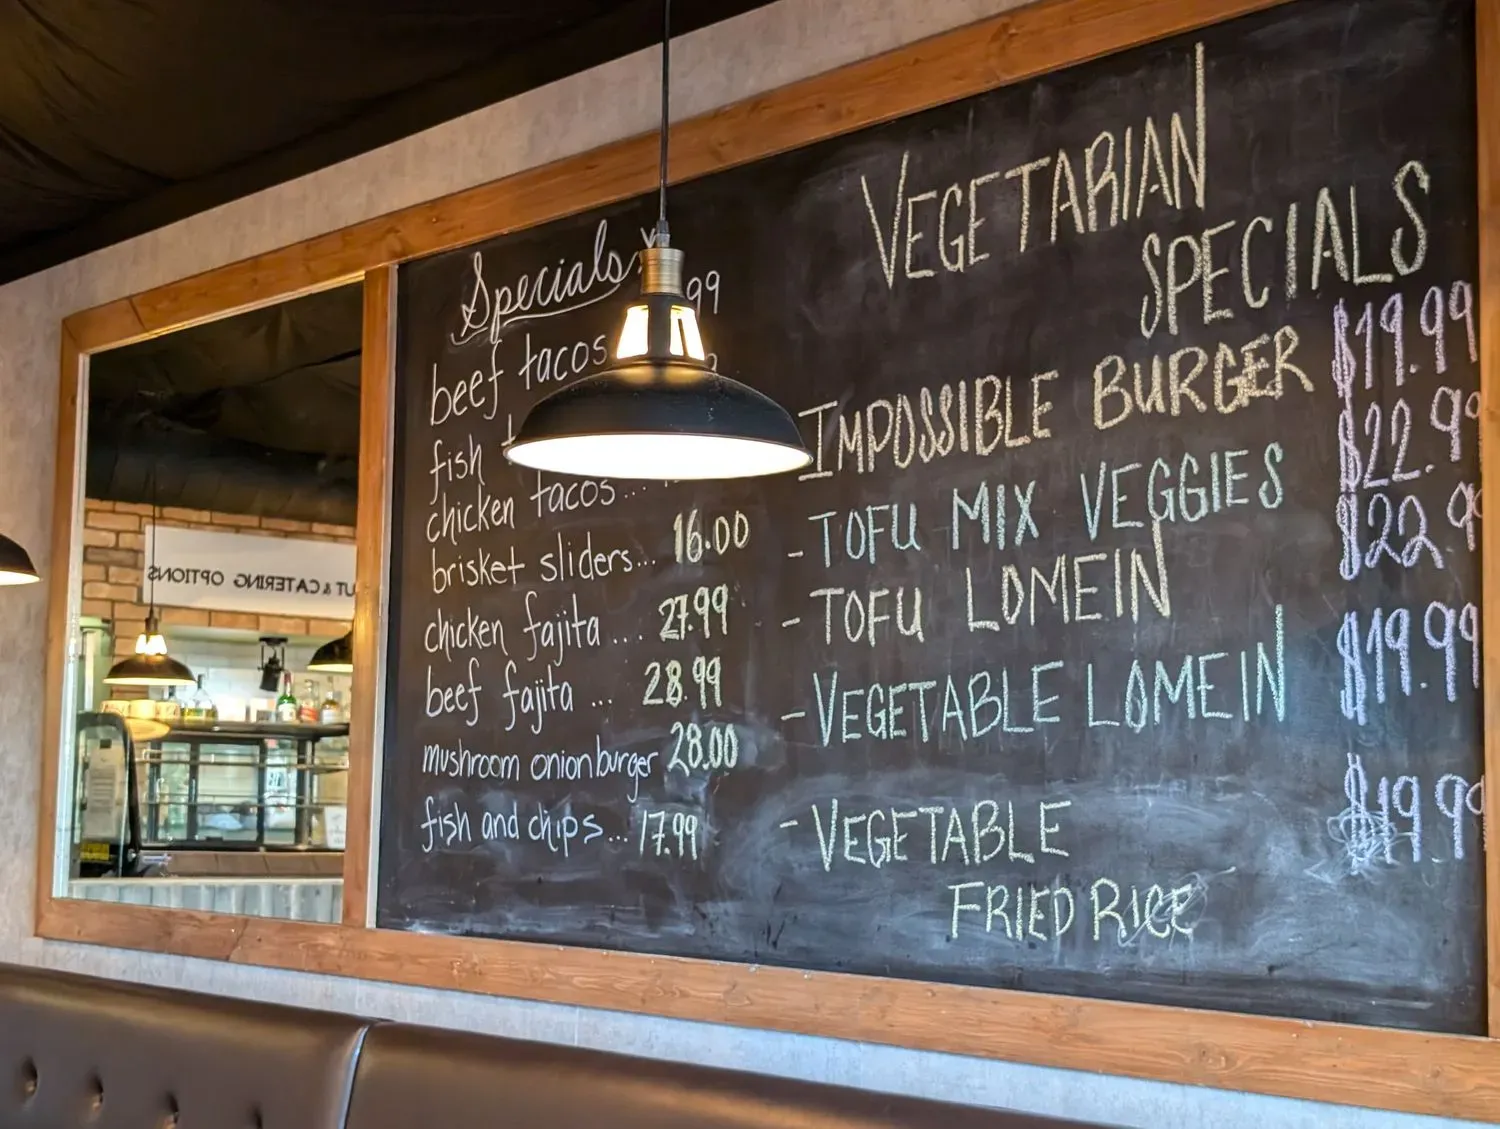 Specials
99
beef tacos
fish
chicken tacos...
brisket sliders... 16.00
chicken fajita ... 27.99
beef fajita ... 28.99
mushroom onion burger 28.00
fish and chips... 17.99
VEGETARIAN
SPECIALS
IMPOSSIBLE BURGER $19.99
- TOFU MIX VEGGIES $22.99
- TOFU LOMEIN $22.9
- VEGETABLE LOMEIN $19.99
- VEGETABLE $19.99
FRIED RICE
UT & CATERING OPTIONS